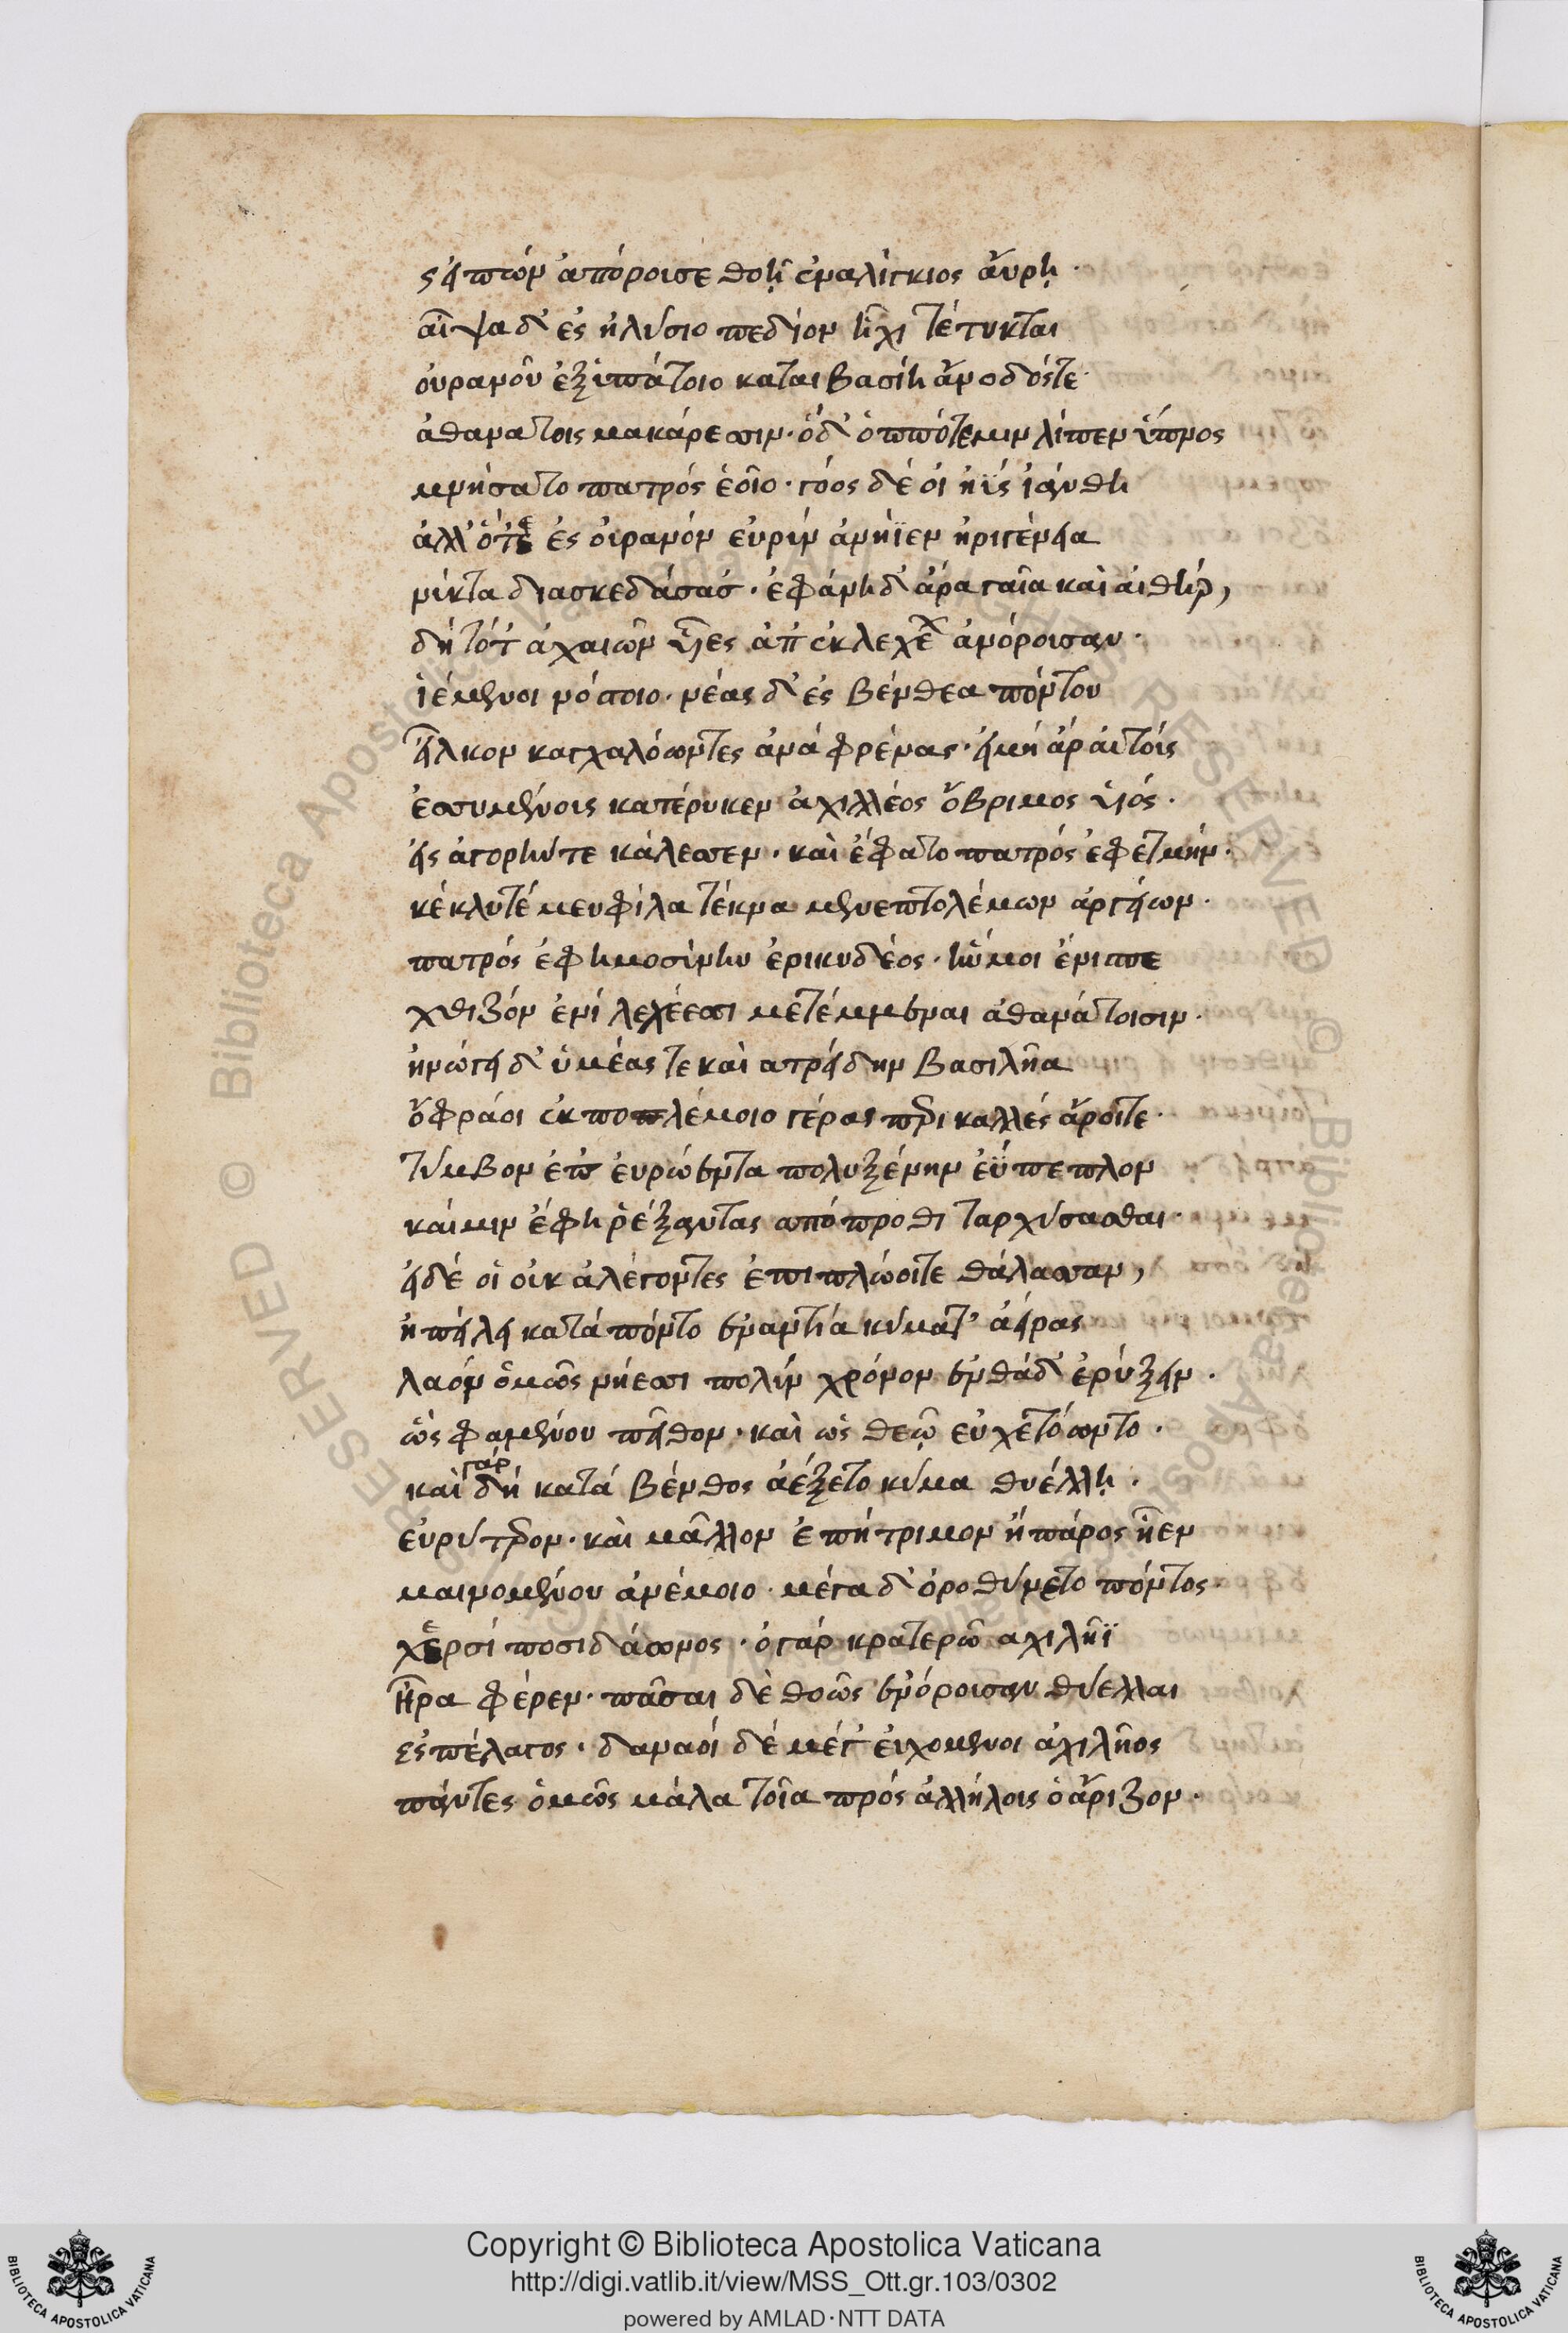 εἰπὼν ἀπόρουσε θοῇ ἐναλίγκιος αὔρῃ·
αἶψα δ' ἐς ἠλύσιο πεδίον ἧχι τέτυκται
οὐρανοῦ ἐξ ὑπάτοιο καταιβασίη ἄνοδός τε
ἀθανάτοις μακάρεσσιν· ὁδ' ὁππότε μιν λίπεν ὕπνος
μνήσατο πατρὸς ἑοῖο· γόος δέ οἱ ἠῢς ἰάνθη
ἀλλ' ὅτε ἐς οὐρανὸν εὐρὺν ἀνήϊεν ἠριγένεια
νύκτα διασκεδάσασ'· ἐφάνη δ' ἄρα γαῖα καὶ αἰθήρ,
δὴ τότ' ἀχαιῶν υἷες ἀπ' ἐκ λεχέων ἀνόρουσαν·
ἱέμενοι νόστοιο· νέας δ' ἐς βένθεα πόντου
εἷλκον καγχαλόωντες ἀνὰ φρένας· εἰ μὴ ἄρ' αὐτοὺς
ἐσσυμένους κατέρυκεν ἀχιλλέος ὄβριμος υἱός·
εἰς ἀγορήν τε κάλεσσεν· καὶ ἔφατο πατρὸς ἐφετμήν·
κέκλυτέ μευ φίλα τέκνα μενεπτολέμων ἀργείων·
πατρὸς ἐφημοσύνην ἐρικυδέος· ἥν μοι ἔνισπε
χθιζὸν ἐνὶ λεχέεσσι μετέμμεναι ἀθανάτοισιν·
ἠνώγει δ' ὑμέας τε καὶ ἀτρείδην βασιλῆα
ὄφρά οἱ ἐκ πολέμοιο γέρας περικαλλὲς ἄροιτε·
τύμβον ἐπ' εὐρώεντα πολυξένην εὔπεπλον
καί μιν ἔφη ῥέξαντας ἀπόπροθι ταρχύσασθαι·
εἰ δέ οἱ οὐκ ἀλέγοντες ἐπιπλώοιτε θάλασσαν,
ἠπείλει κατὰ πόντο ἐναντία κύματ' ἀείρας
λαὸν ὁμῶς νήεσσι πολὺν χρόνον ἐνθάδ' ἐρύξειν·
ὣς φαμένου πεῖθον· καὶ ὡς θεῷ εὐχετόωντο·
καὶ γὰρ δὴ κατὰ βένθος ἀέξετο κῦμα θυέλλῃ·
εὐρύτερον· καὶ μᾶλλον ἐπήτριμον ἢ πάρος ἦεν
μαινομένου ἀνέμοιο· μέγα δ' ὀροθύνετο πόντος·
χερσὶ ποσιδάωνος· ὁ γὰρ κρατερῷ ἀχιλῆϊ
ἦρα φέρεν· πᾶσαι δὲ θοῶς ἐνόρουσαν θύελλαι
ἐς πέλαγος· δαναοὶ δὲ μέγ' εὐχόμενοι ἀχιλῆος
πάντες ὁμῶς μάλα τοῖα πρὸς ἀλλήλους ὀάριζον·
Copyright © Biblioteca Apostolica Vaticana
http://digi.vatlib.it/view/MSS_Ott.gr.103/0302
powered by AMLAD·NTT DATA